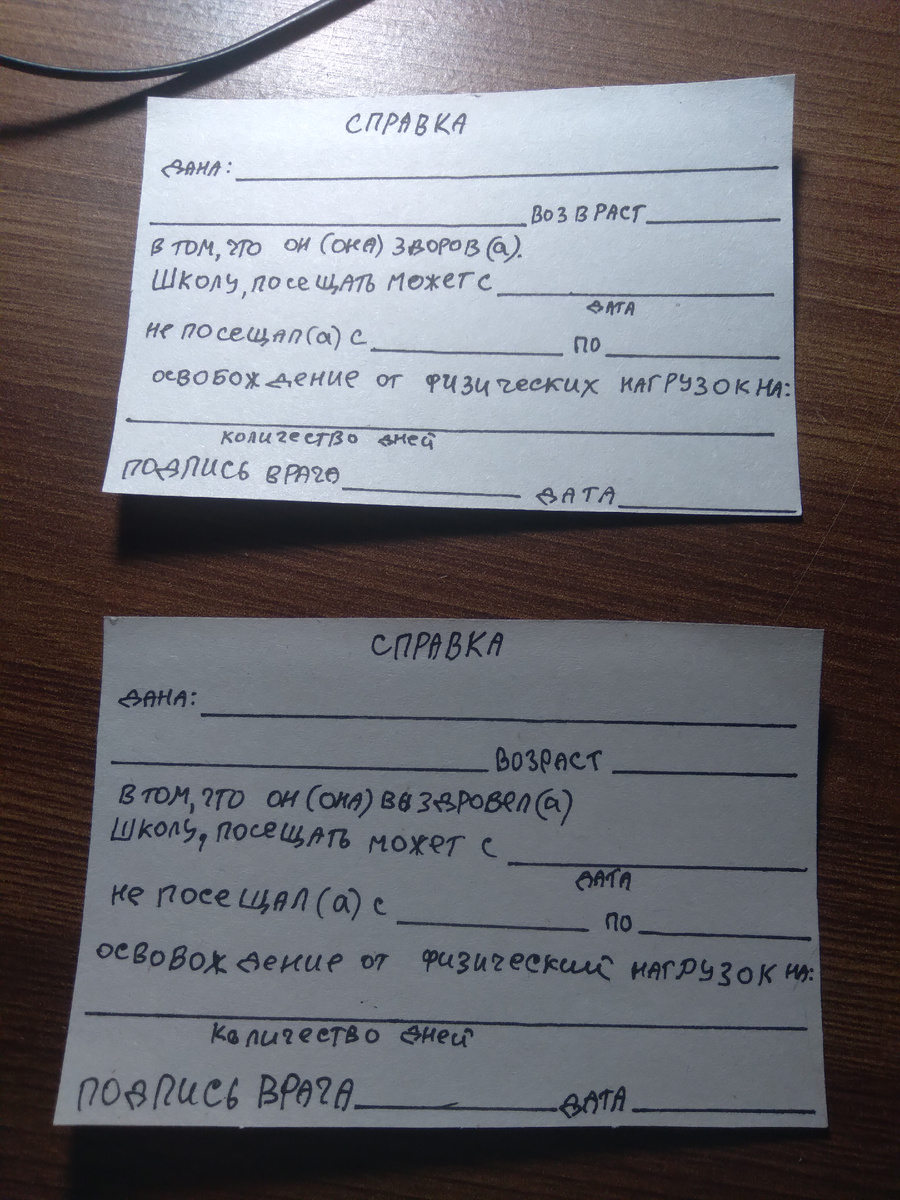 СПРАВКА
ДАНА:
ВОЗВРАСТ
В ТОМ, ЧТО ОН (ОНА) ЗДОРОВ(а).
ШКОЛУ, ПОСЕЩАТЬ МОЖЕТ С
ДАТА
НЕ ПОСЕЩАЛ(а) С ПО
ОСВОБОЖДЕНИЕ ОТ ФИЗИЧЕСКИХ НАГРУЗОК НА:
КОЛИЧЕСТВО ДНЕЙ
ПОДПИСЬ ВРАЧА ДАТА
СПРАВКА
ДАНА:
ВОЗРАСТ
В ТОМ, ЧТО ОН (ОНА) ВЫЗДРОВЕЛ(а)
ШКОЛУ, ПОСЕЩАТЬ МОЖЕТ С
ДАТА
НЕ ПОСЕЩАЛ(а) С ПО
ОСВОВОЖДЕНИЕ ОТ ФИЗИЧЕСКИЙ НАГРУЗОК НА:
КОЛИЧЕСТВО ДНЕЙ
ПОДПИСЬ ВРАЧА ДАТА